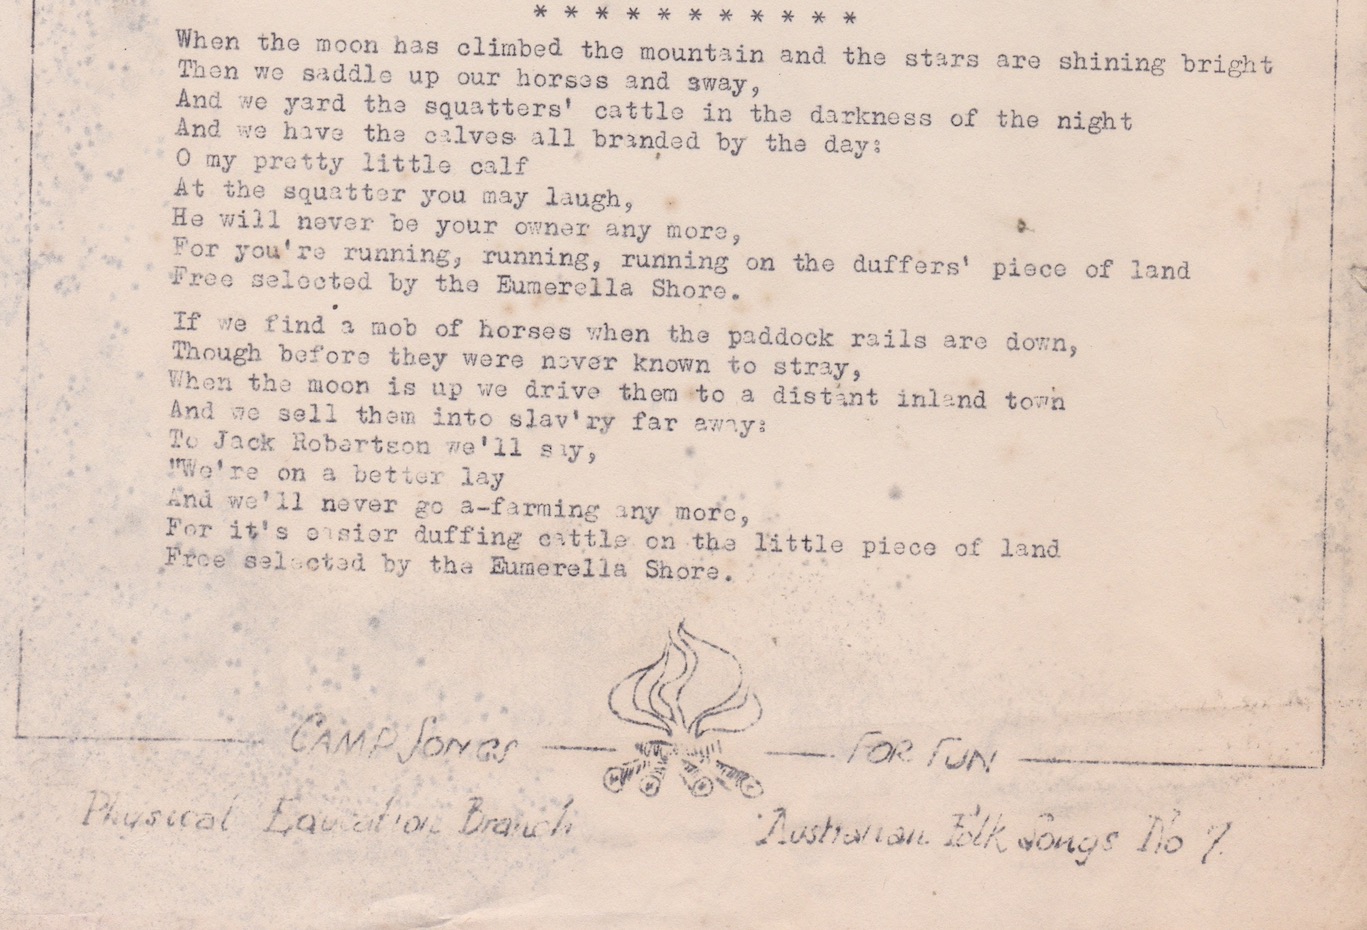 * * * * * * * * * * *
When the moon has climbed the mountain and the stars are shining bright
Then we saddle up our horses and away,
And we yard the squatters' cattle in the darkness of the night
And we have the calves all branded by the day:
O my pretty little calf
At the squatter you may laugh,
He will never be your owner any more,
For you're running, running, running on the duffers' piece of land
Free selected by the Eumerella Shore.
If we find a mob of horses when the paddock rails are down,
Though before they were never known to stray,
When the moon is up we drive them to a distant inland town
And we sell them into slav'ry far away:
To Jack Robertson we'll say,
"We're on a better lay
And we'll never go a-farming any more,
For it's easier duffing cattle on the little piece of land
Free selected by the Eumerella Shore.
CAMP SONGS FOR FUN
Physical Education Branch Australian Folk Songs No 7.